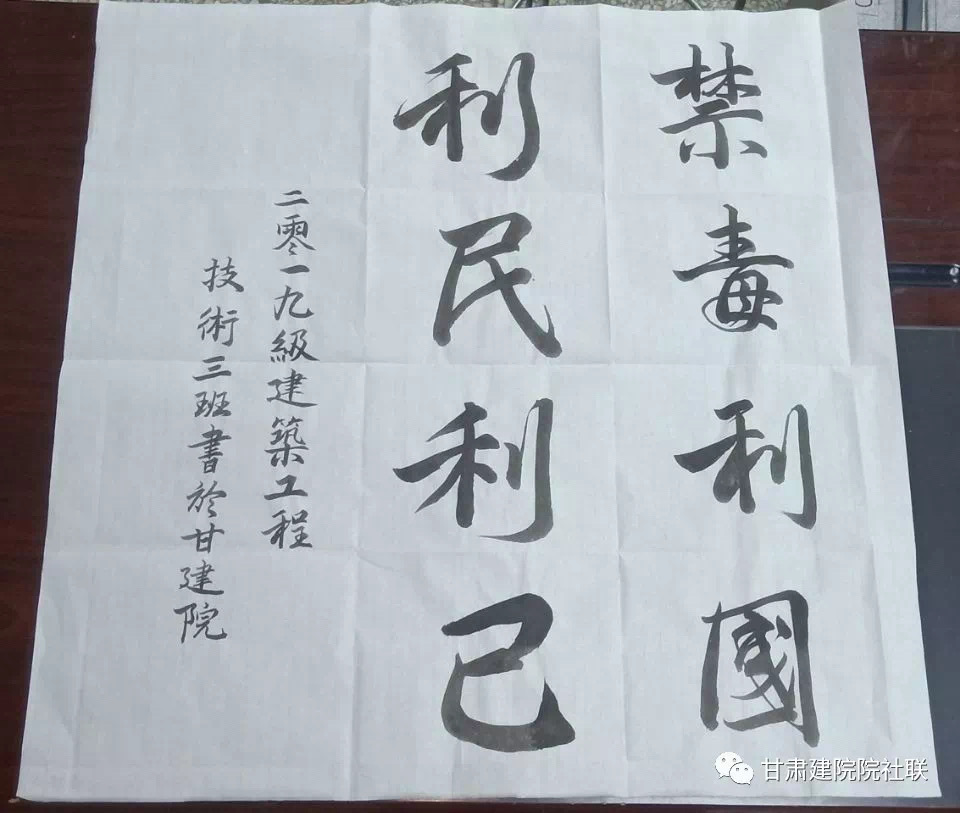 禁毒利國
利民利己
二零一九級建築工程
技術三班書於甘建院
甘肃建院院社联